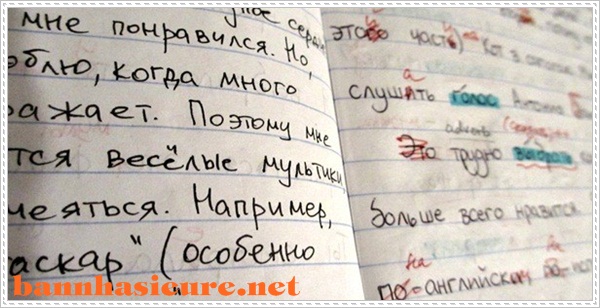 мне понравился. Но,
облю, когда много
ажает. Поэтому мне
тся весёлые мультики
меяться. Например,
аскар" (особенно
этого часть) Кот в
слушать голос Антонио
adverb
Это трудно выбрать
больше всего нравится
по-английски по-
bannhasicure.net